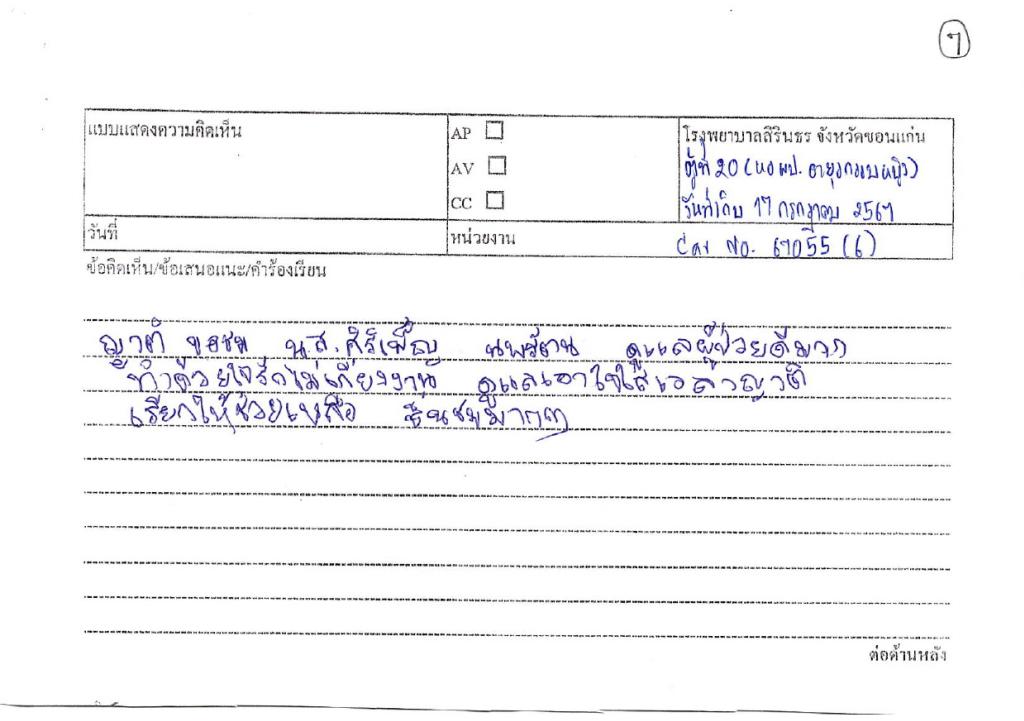 ๗
แบบแสดงความคิดเห็น
AP
AV
CC
โรงพยาบาลสิรินธร จังหวัดขอนแก่น
ตู้ที่ 20 (หอผป. อายุรกรรมหญิง)
วันที่เก็บ 17 กรกฎาคม 2567
วันที่
หน่วยงาน
Car No. 67055 (6)
ข้อคิดเห็น/ข้อเสนอแนะ/คำร้องเรียน
ญาติ ขอชม น.ส.ศิริเพ็ญ ดูแลผู้ป่วยดีมาก
ทำด้วยใจรักไม่เกี่ยงงาน ดูแลเอาใจใส่เวลาญาติ
เรียกให้ช่วยเหลือ ชื่นชมมากๆ
ต่อด้านหลัง